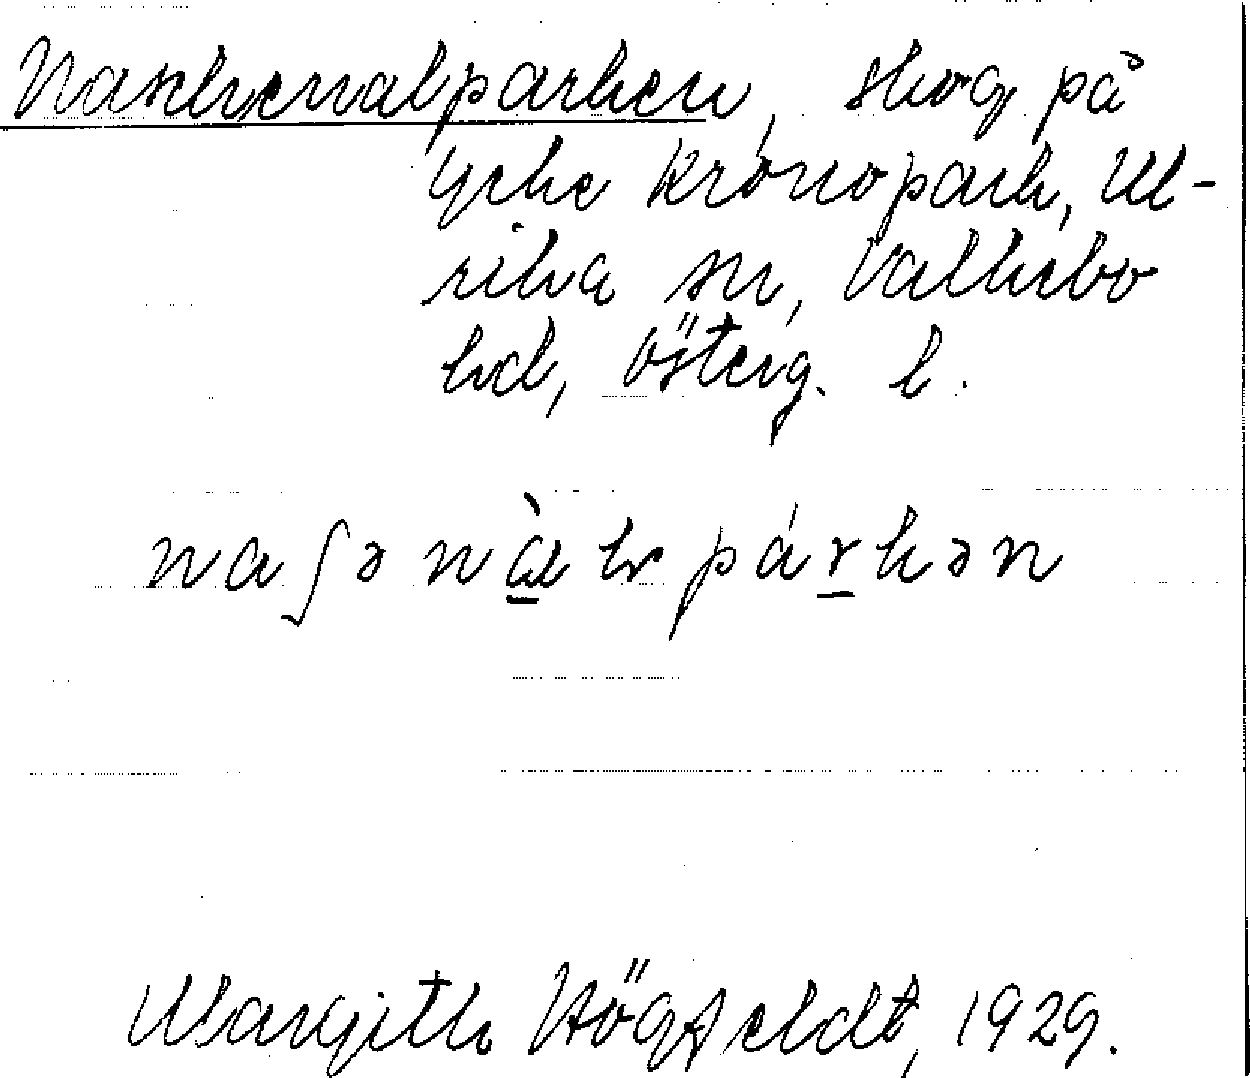 Naskenalparken, skog på
Ycke Kronopark, Ul-
rika sn, Valkebo
hd, Österg. l.
naʃənàlpárkən
Margith Högfeldt, 1929.